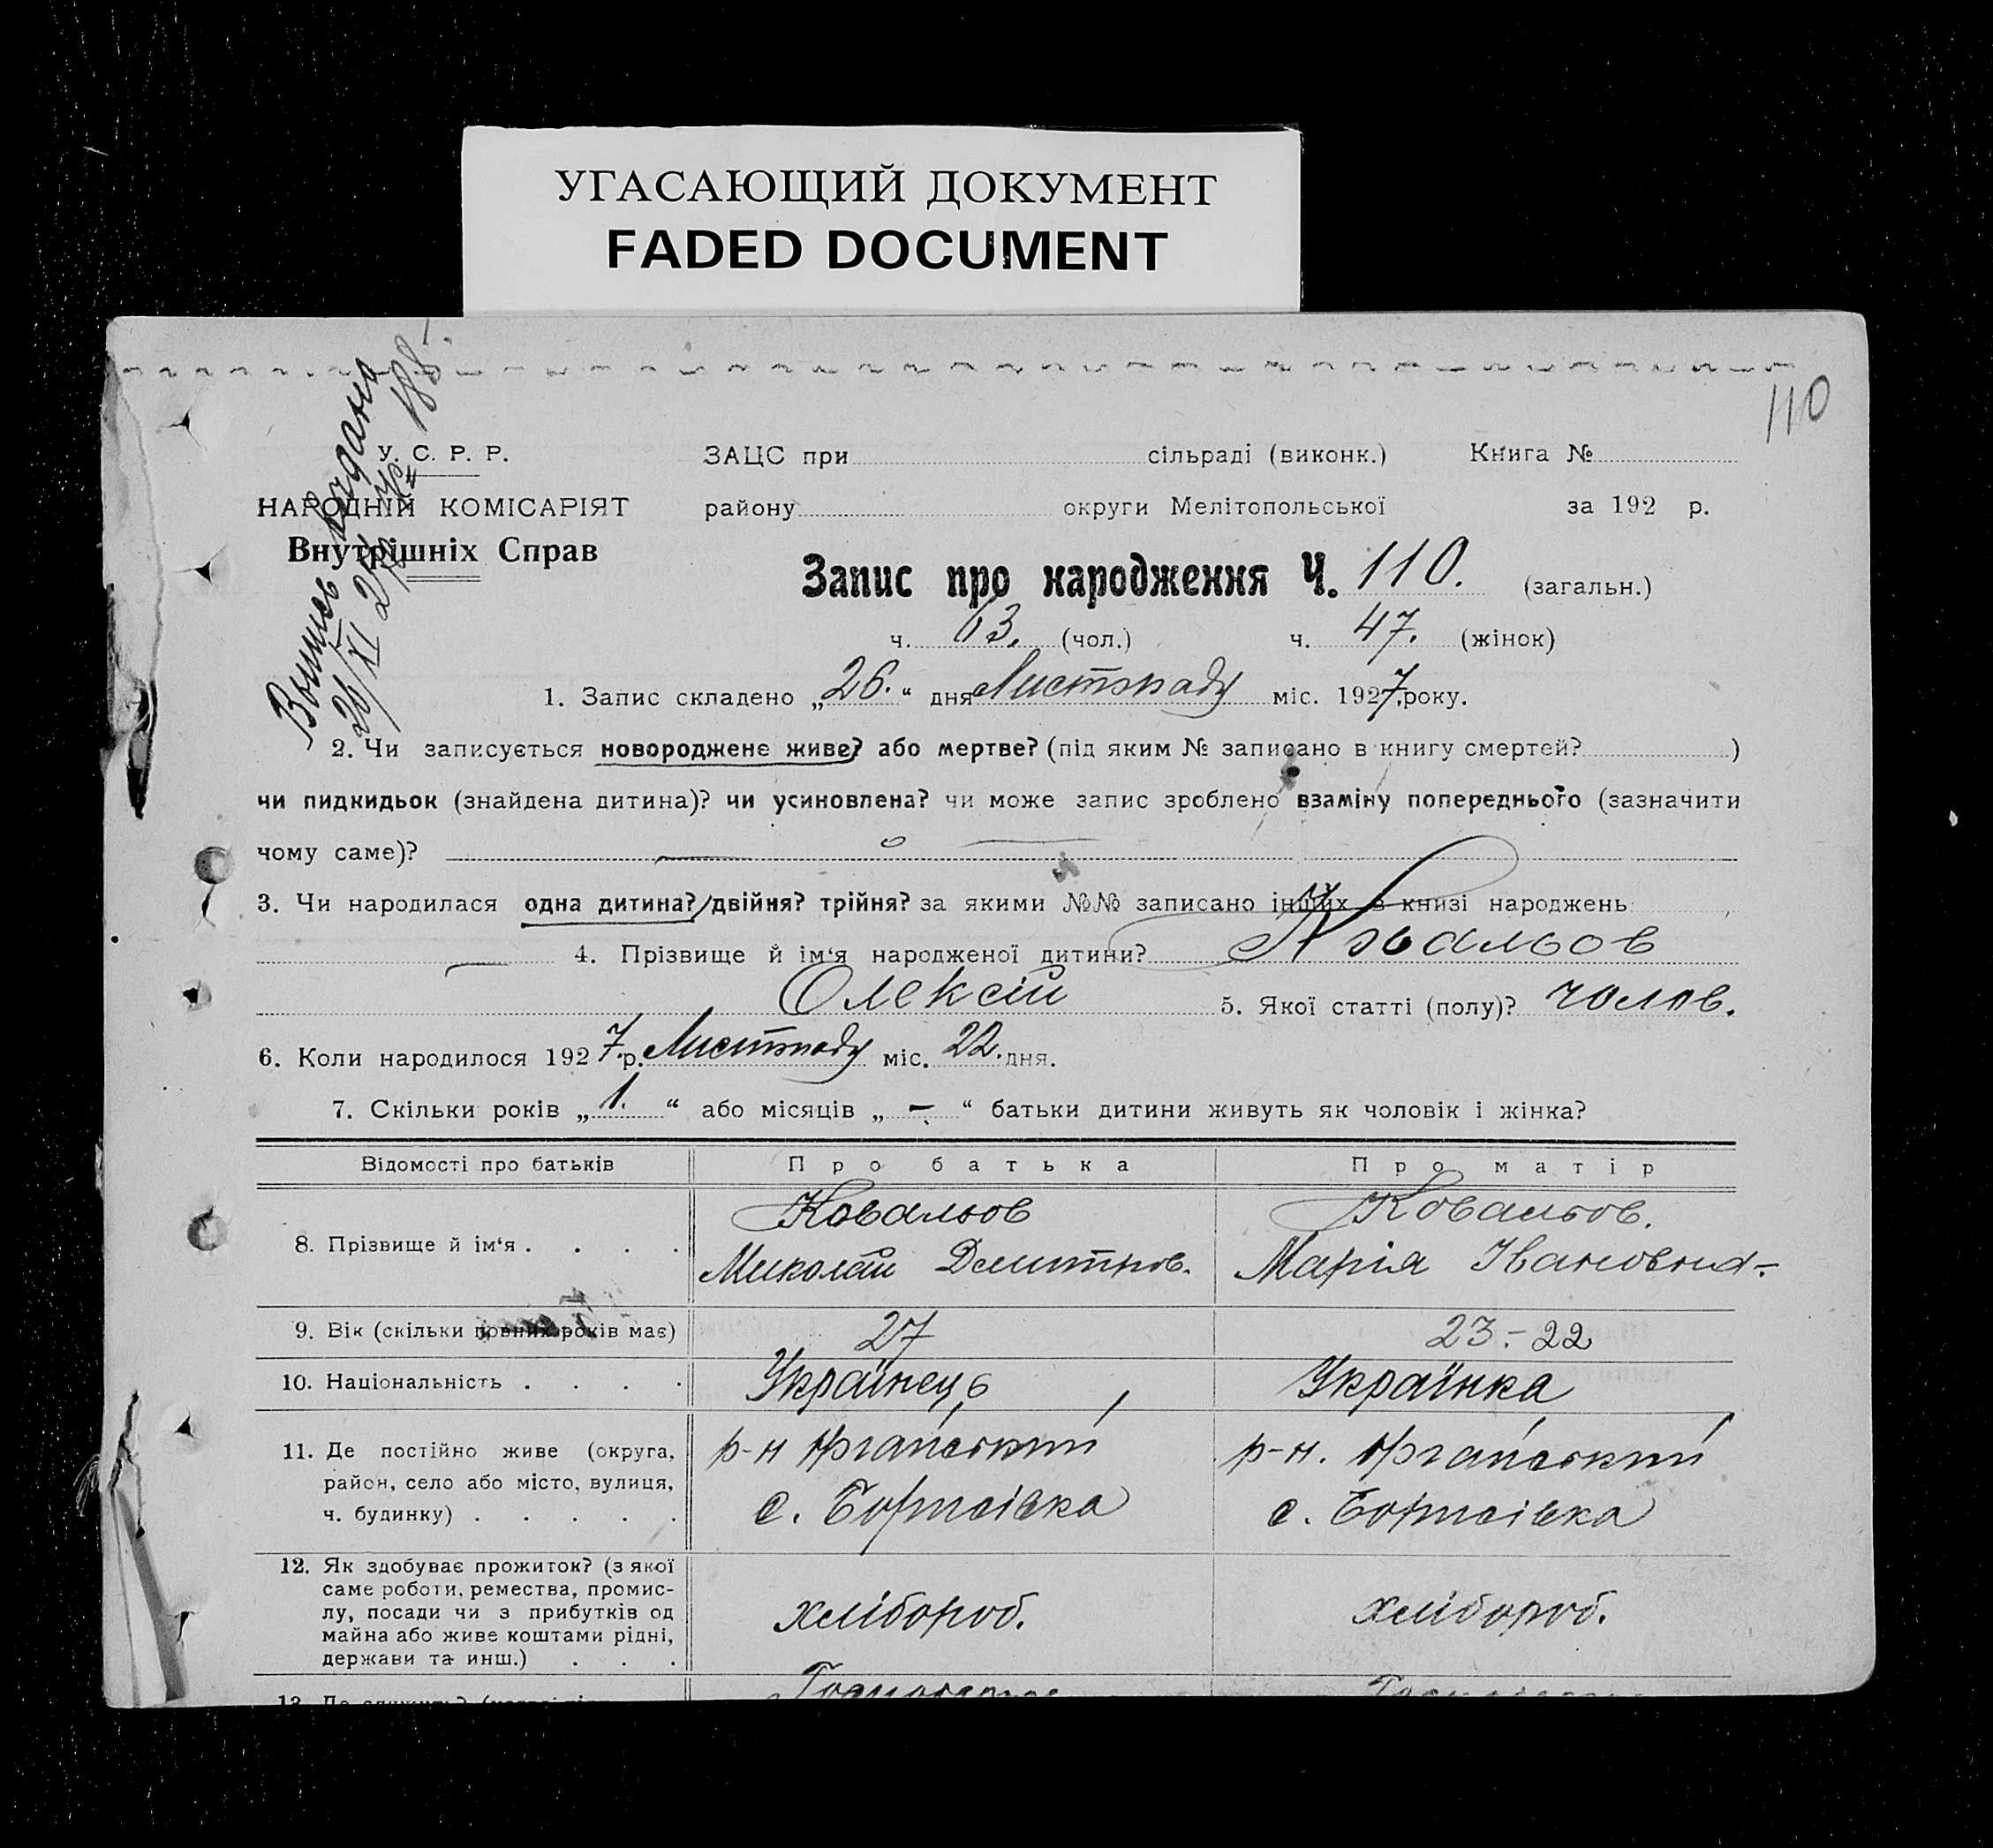 УГАСАЮЩИЙ ДОКУМЕНТ
FADED DOCUMENT
110
Выпись выдана
26/XI 27 р. № 188
У. С. Р. Р.
НАРОДНІЙ КОМІСАРІЯТ
Внутрішніх Справ
ЗАЦС при сільраді (виконк.) Книга №
району округи Мелітопольської за 192 р.
Запис про народження Ч. 110. (загальн.)
ч. 63. (чол.) ч. 47. (жінок)
1. Запис складено „26.“ дня Листопаду міс. 1927, року.
2. Чи записується новороджене живе? або мертве? (під яким № записано в книгу смертей? )
чи пидкидьок (знайдена дитина)? чи усиновлена? чи може запис зроблено взаміну попереднього (зазначити
чому саме)?
3. Чи народилася одна дитина? двійня? трійня? за якими №№ записано інших в книзі народжень
4. Прізвище й ім'я народженої дитини? Ковальов
Олексій 5. Якої статті (полу)? чолов.
6. Коли народилося 1927.р. Листопаду міс. 22. дня.
7. Скільки років „1.“ або місяців „-“ батьки дитини живуть як чоловік і жінка?
Відомості про батьків Про батька Про матір
8. Прізвище й ім'я . . . . Ковальов Ковальов.
Миколай Дмитров. Марія Івановна-
9. Вік (скільки повних років має) 27 23.- 22
10. Національність . . . . Українець Українка
11. Де постійно живе (округа, район, село або місто, вулиця, ч. будинку) . . . . . р-н р-н.
с. Борисівка с. Борисівка
12. Як здобуває прожиток? (з якої саме роботи, ремества, промис-
лу, посади чи з прибутків од
майна або живе коштами рідні,
держави та инш.) . . . хлібороб. хлібороб.